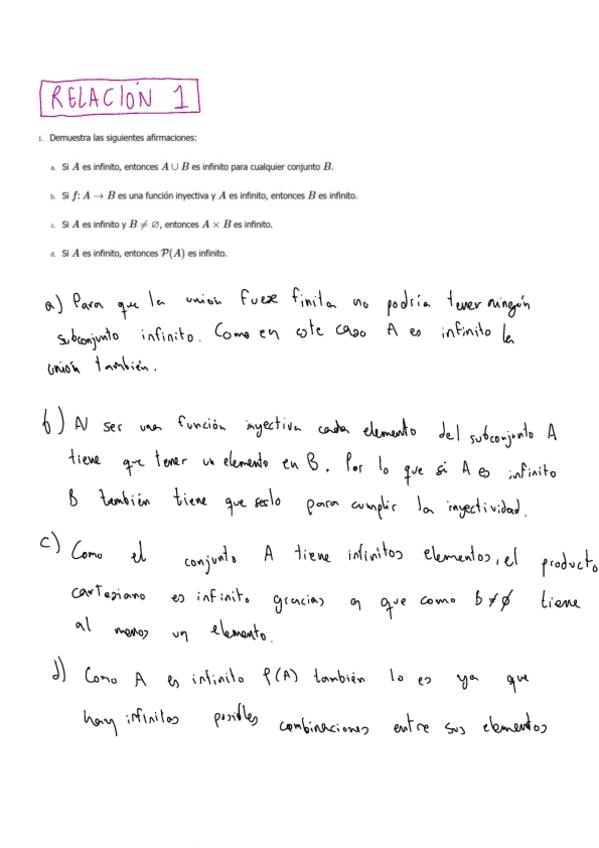 RELACIÓN 1
1. Demuestra las siguientes afirmaciones:
a. Si A es infinito, entonces A ∪ B es infinito para cualquier conjunto B.
b. Si f: A → B es una función inyectiva y A es infinito, entonces B es infinito.
c. Si A es infinito y B ≠ ∅, entonces A × B es infinito.
d. Si A es infinito, entonces P(A) es infinito.
a) Para que la union fuese finita no podría tener ningún
subconjunto infinito. Como en este caso A es infinito la
unión también.
b) Al ser una función inyectiva cada elemento del subconjunto A
tiene que tener un elemento en B. Por lo que si A es infinito
B también tiene que serlo para cumplir la inyectividad.
c) Como el conjunto A tiene infinitos elementos, el producto
cartesiano es infinito gracias a que como b≠∅ tiene
al menos un elemento.
d) Como A es infinito P(A) también lo es ya que
hay infinitos posibles combinaciones entre sus elementos